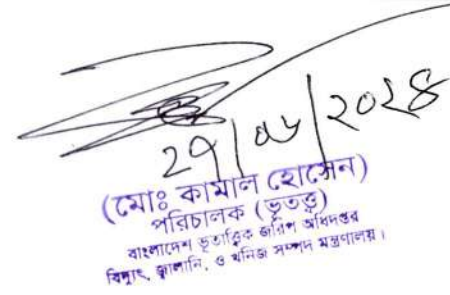 ২৭/০৬/২০২৪
(মোঃ কামাল হোসেন)
পরিচালক (ভূতত্ত্ব)
বাংলাদেশ ভূতাত্ত্বিক জরিপ অধিদপ্তর
বিদ্যুৎ, জ্বালানি, ও খনিজ সম্পদ মন্ত্রণালয়।